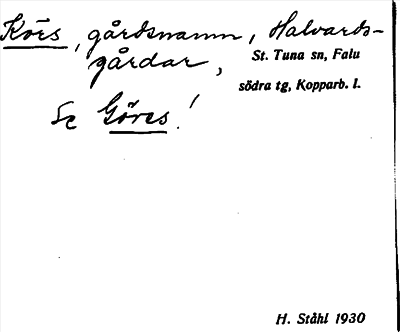 Körs, gårdsnamn, Halvards-
gårdar, St. Tuna sn, Falu
södra tg, Kopparb. l.
Se Göres!
H. Ståhl 1930